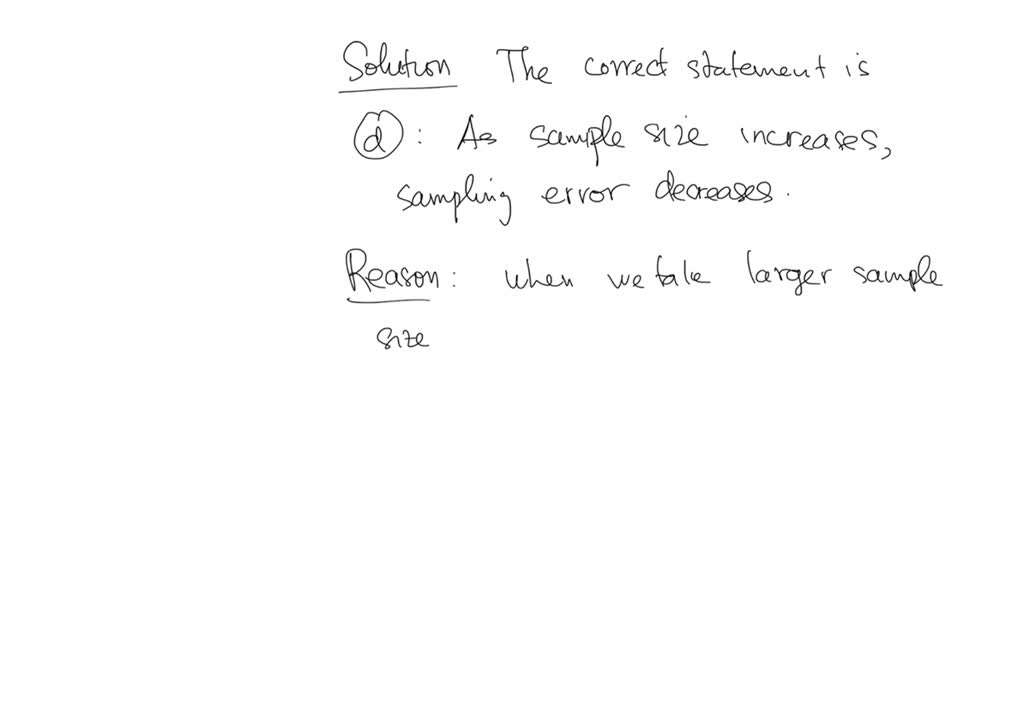 Solution The correct statement is
d : As sample size increases,
sampling error decreases.
Reason : when we take larger sample
size